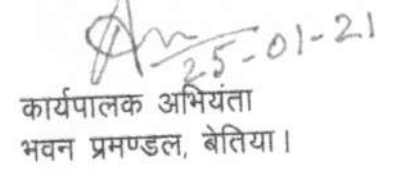 25-01-21
कार्यपालक अभियंता
भवन प्रमण्डल, बेतिया।